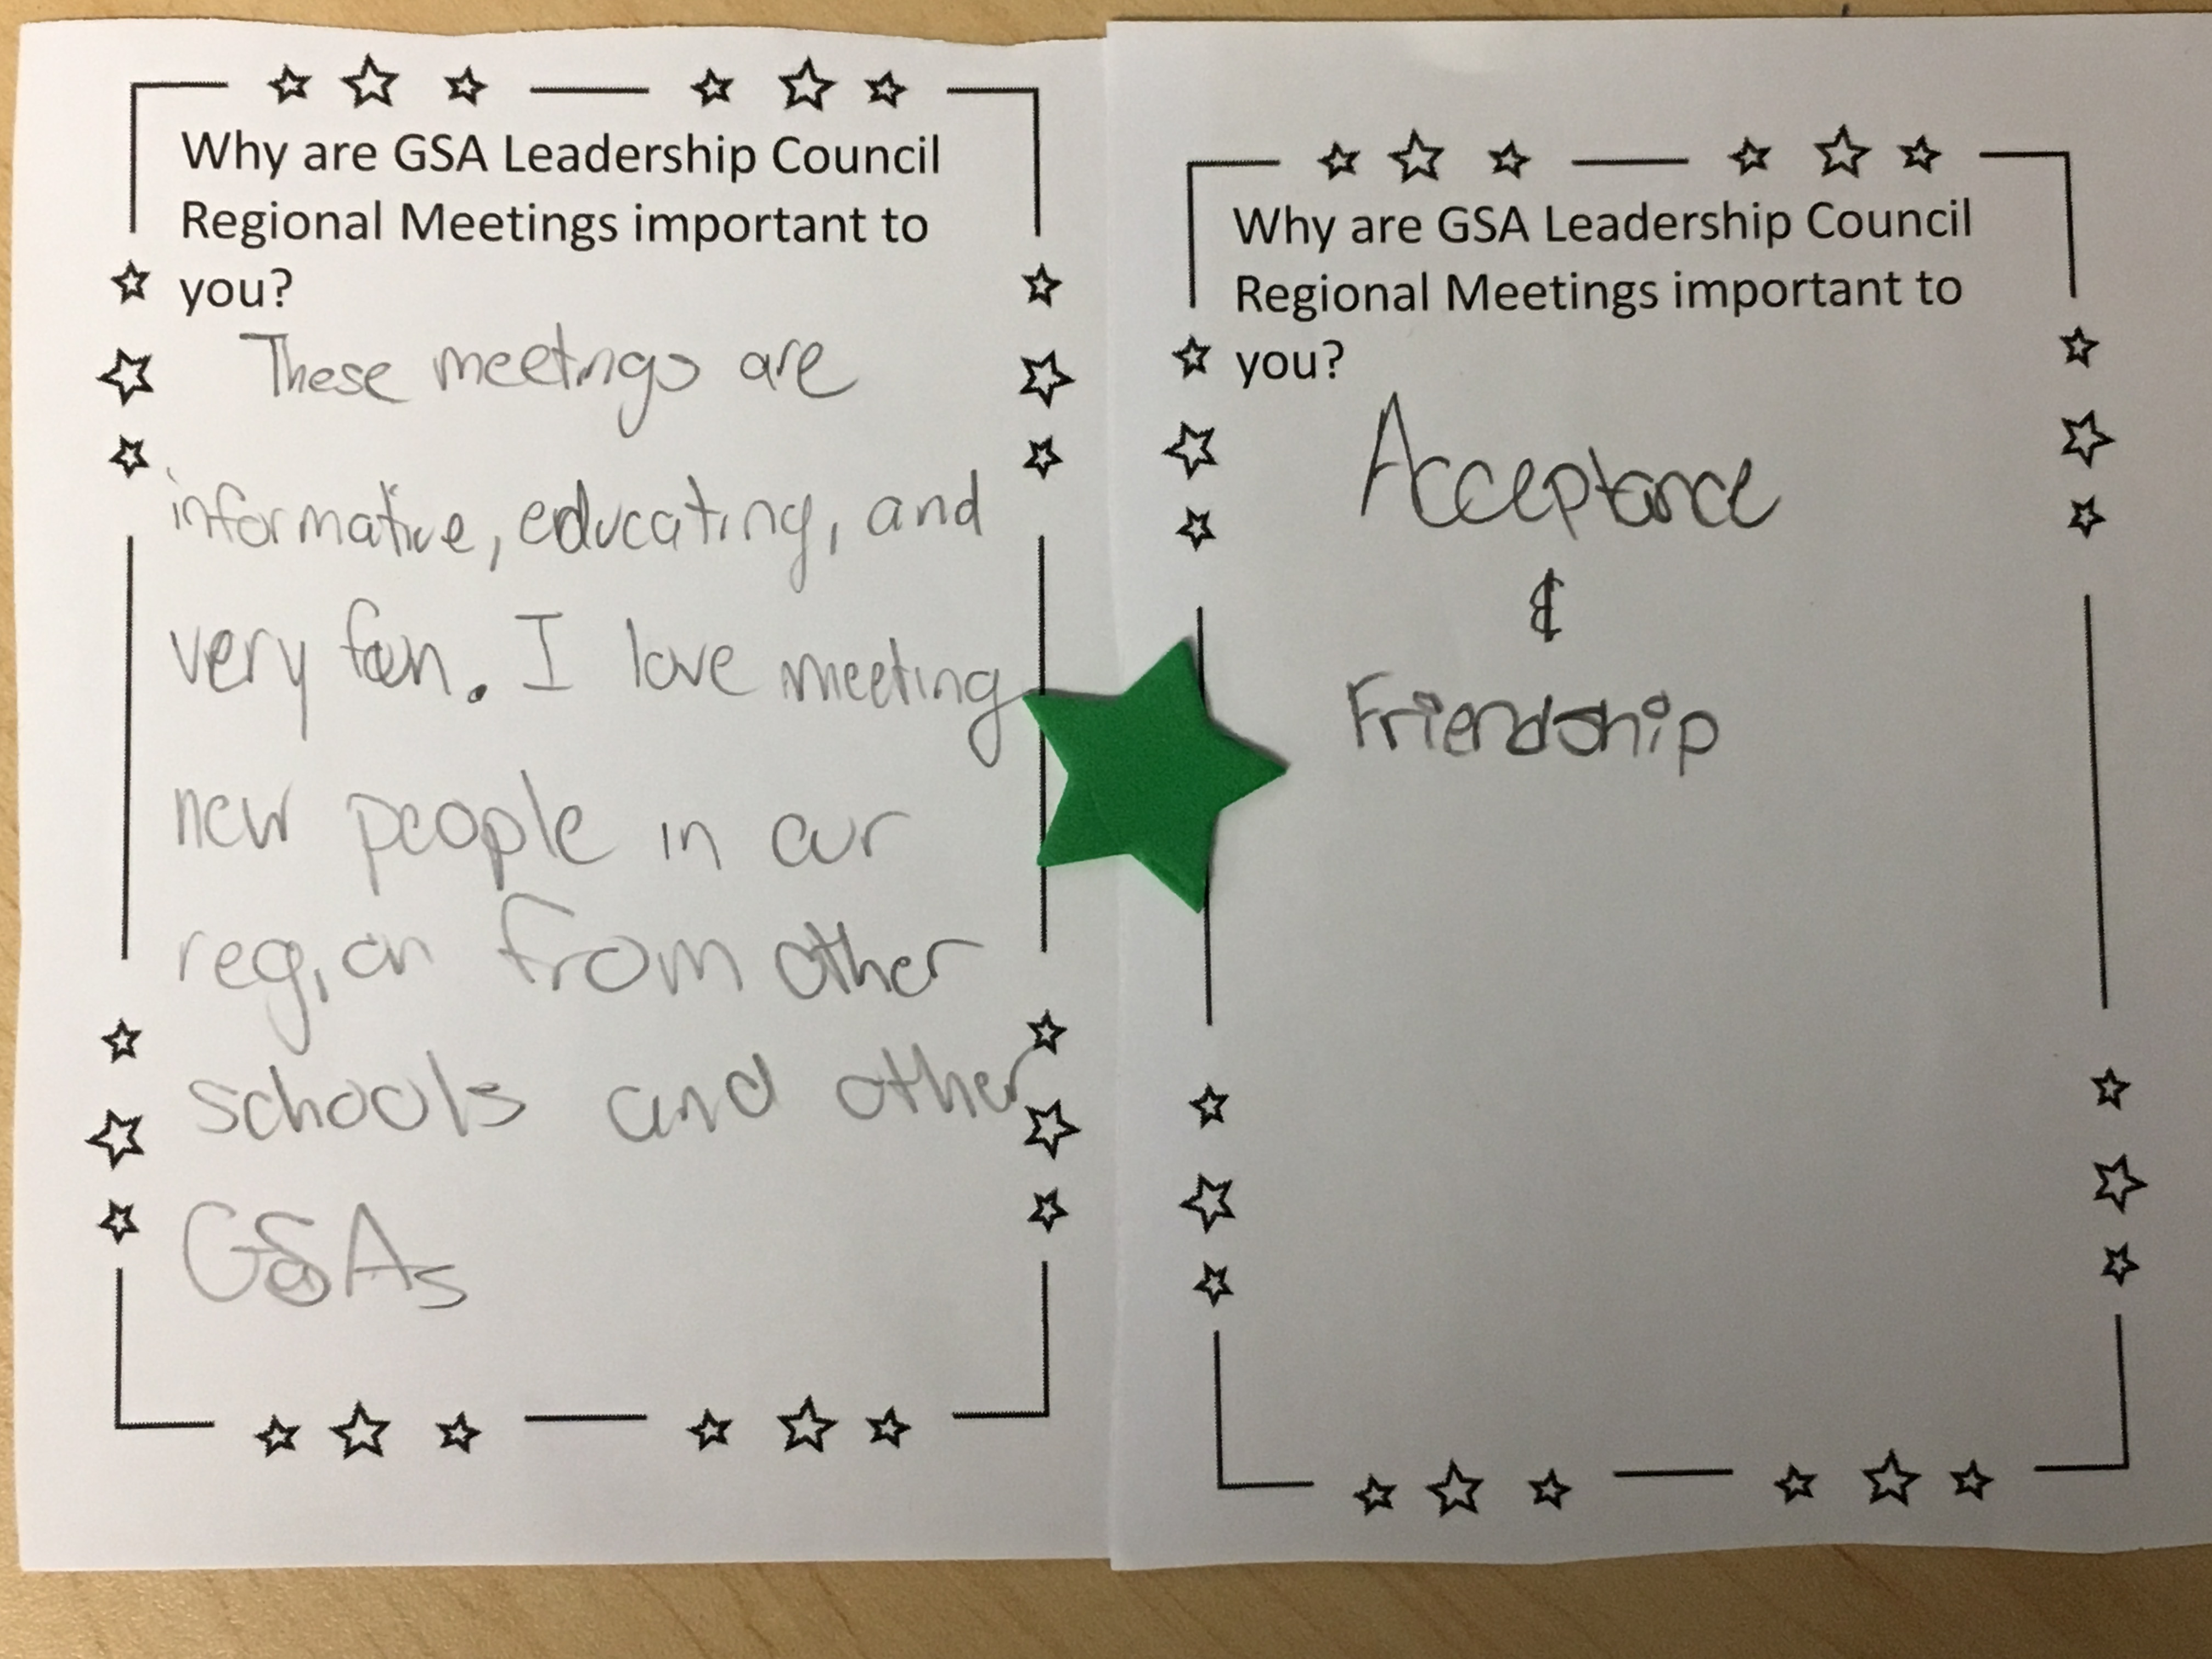 Why are GSA Leadership Council
Regional Meetings important to
you?
These meetings are
informative, educating, and
very fun. I love meeting
new people in our
region from other
schools and other
GSAs
Why are GSA Leadership Council
Regional Meetings important to
you?
Acceptance
&
Friendship